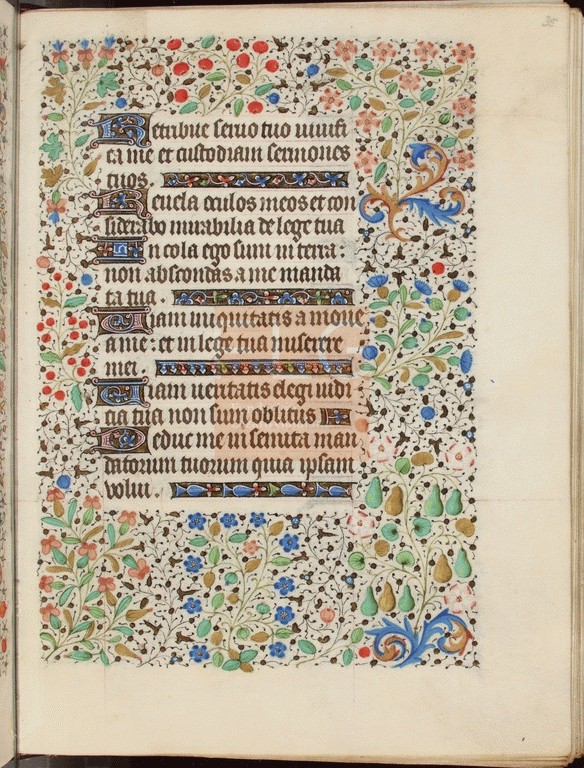 35
Retribue servo tuo vivifi
ca me et custodiam sermones
tuos.
Revela oculos meos et con
siderabo mirabilia de lege tua
Incola ego sum in terra ·
non abscondas a me manda
ta tua .
Viam iniquitatis a move
a me : et in lege tua miserere
mei
Viam veritatis elegi iudi
cia tua non sum oblitus
Deduc me in semita man
datorum tuorum quia ipsam
volui .